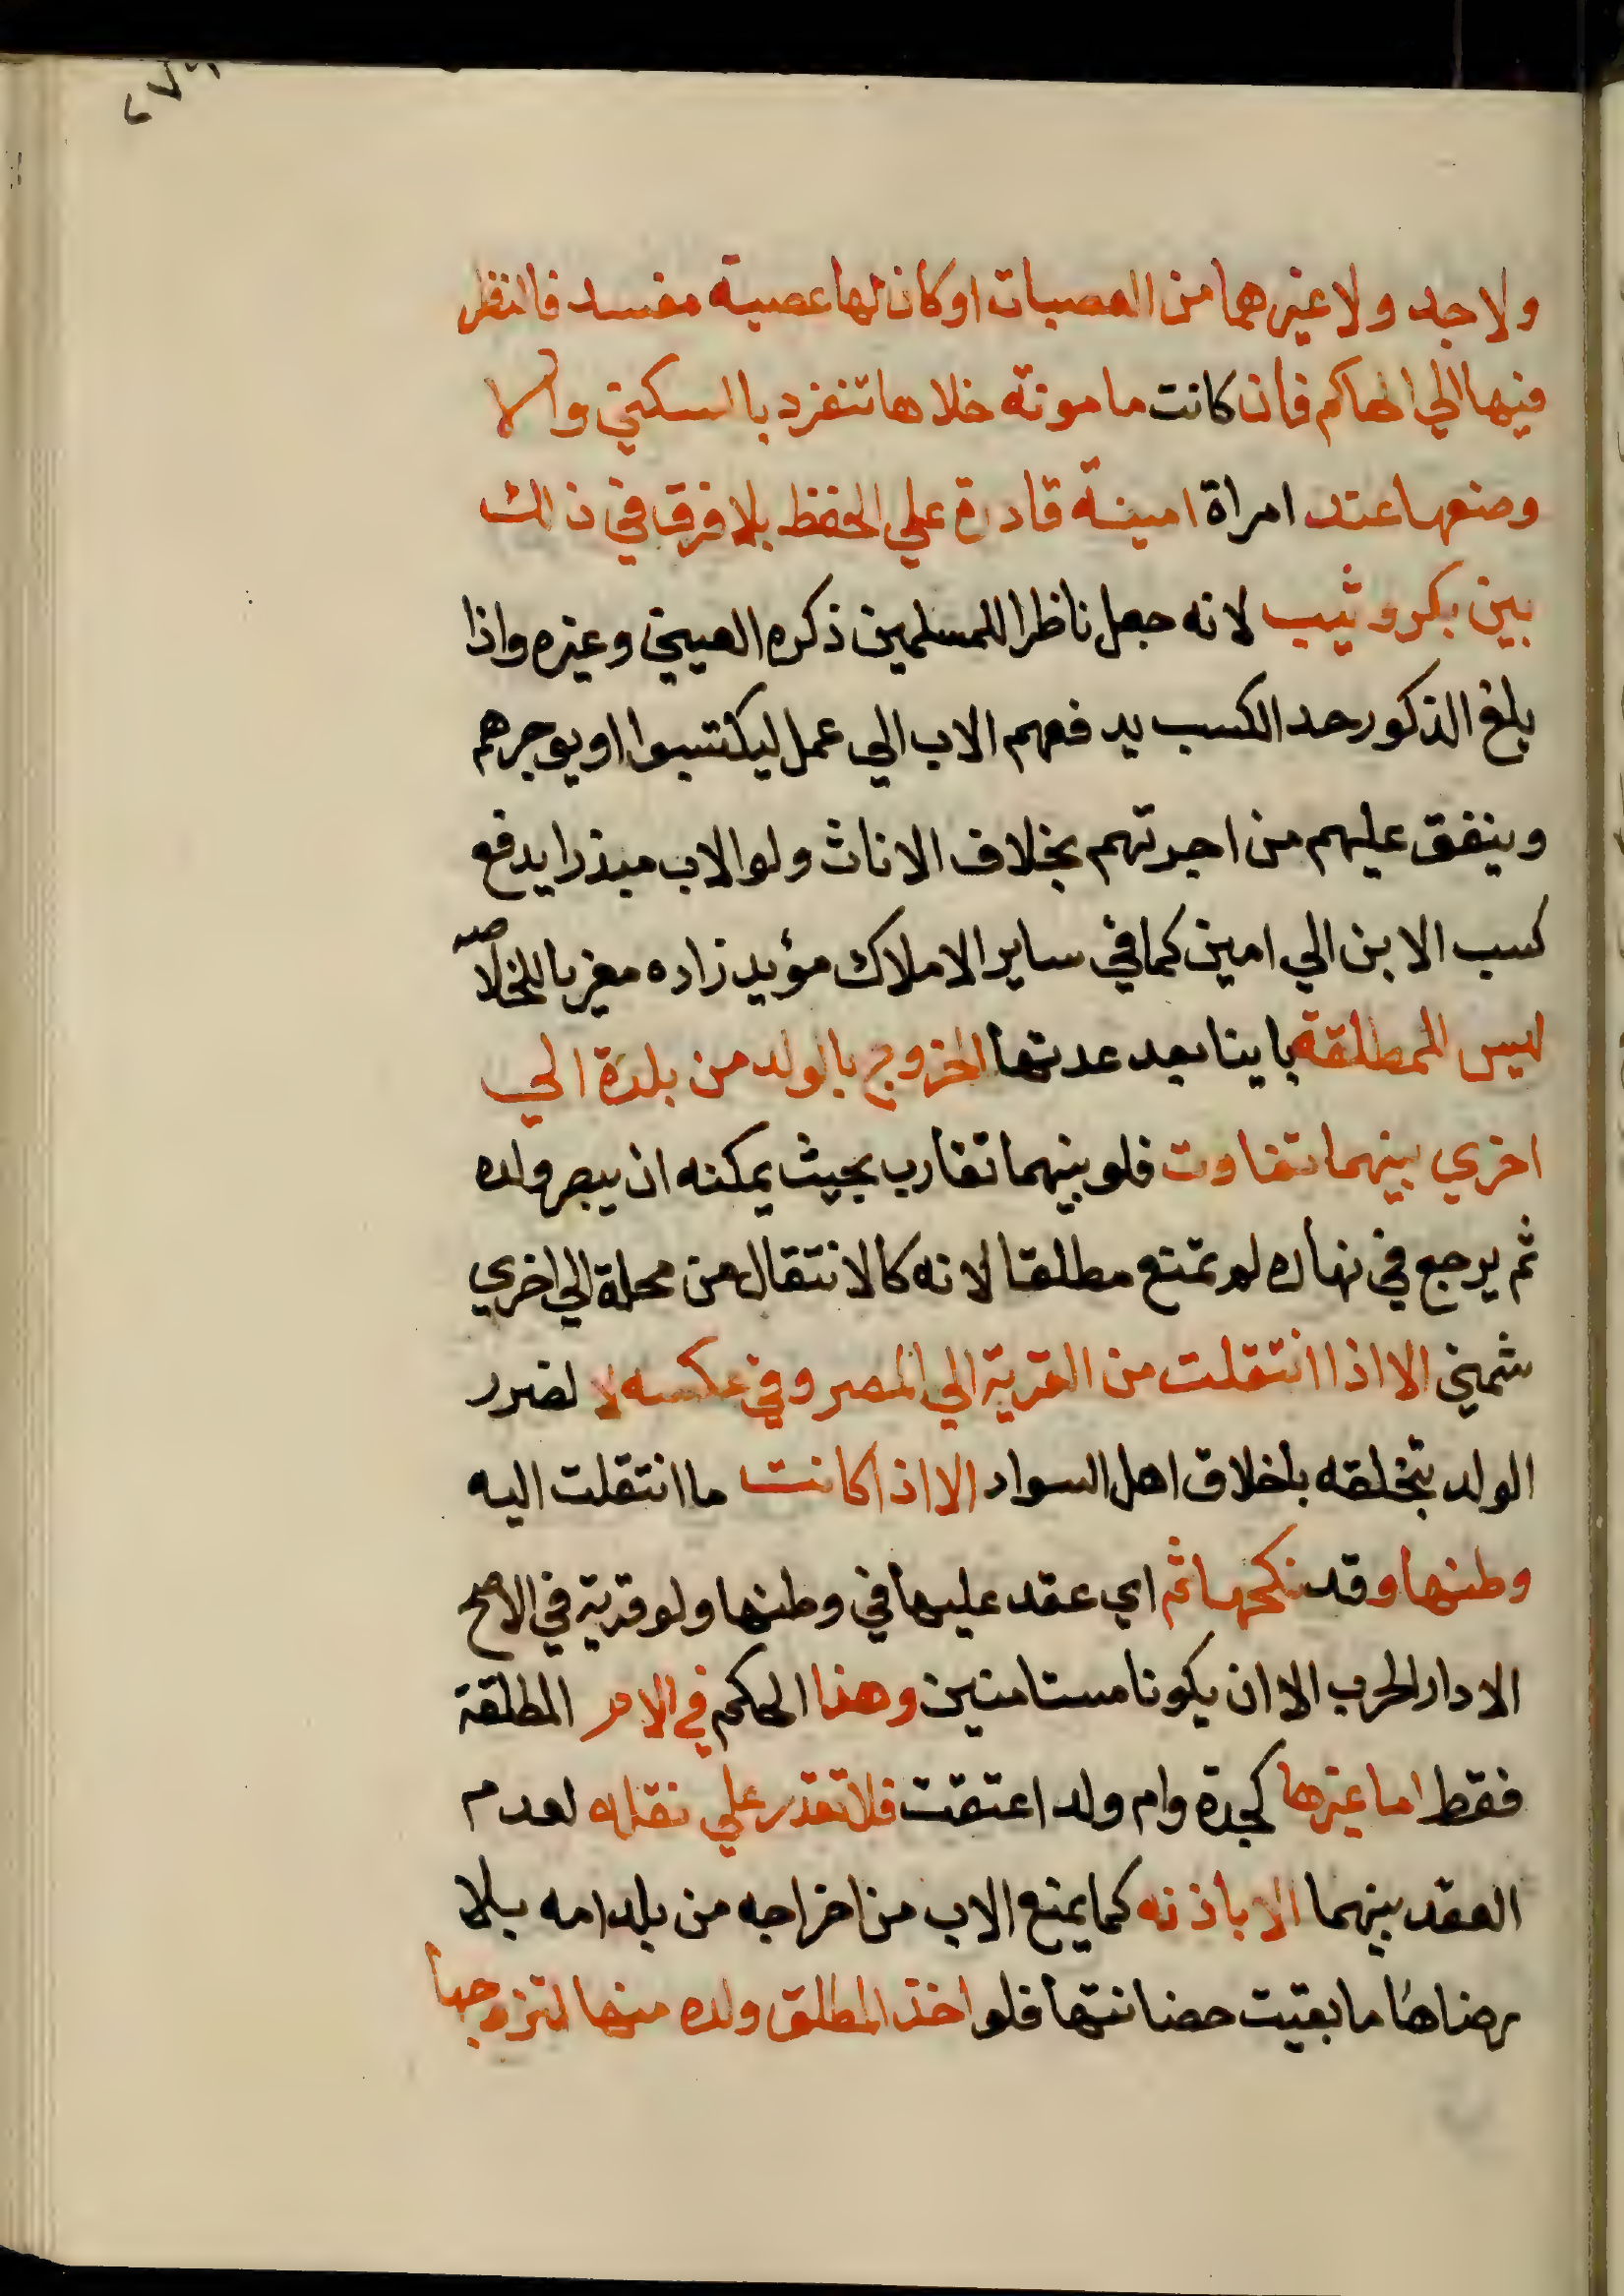 ولا جد ولا غيرهما من العصبات او كان لها عصبة مفسد فالنظر
فيها الي الحاكم فان كانت مامونة خلاها تنفرد بالسكني والا
وضعها عند امراة امينة قادرة علي الحفظ بلا فرق في ذلك
بين بكر وثيب لانه جعل ناظرا للمسلمين ذكره العيني وغيره واذا
بلغ الذكور حد الكسب يدفعهم الاب الي عمل ليكتسبوا او يوجرهم
وينفق عليهم من اجرتهم بخلاف الاناث ولو الاب مبذرا يدفع
كسب الابن الي امين كما في ساير الاملاك مؤيد زاده معزيا للخلاصه
ليس للمطلقة باينا بعد عدتها الخروج بالولد من بلدة الي
اخري بينهما تفاوت فلو بينهما تقارب بحيث يمكنه ان يبصر ولده
ثم يرجع في نهاره لم تمنع مطلقا لانه كالانتقال من محلة الي اخري
شمني الا اذا انتقلت من القرية الي المصر وفي عكسه لا لضرر
الولد بتخلقه باخلاق اهل السواد الا اذا كانت ما انتقلت اليه
وطنها وقد نكحها ثم اي عقد عليها في وطنها ولو قرية في الاصح
الا دار الحرب الا ان يكونا مستامنين وهذا الحكم في الام المطلقة
فقط اما غيرها كجدة وام ولد اعتقت فلا تقدر علي نقله لعدم
العقد بينهما الا باذنه كما يمنع الاب من اخراجه من بلد امه بلا
رضاها ما بقيت حضانتها فلو اخذ المطلق ولده منها لتزوجها